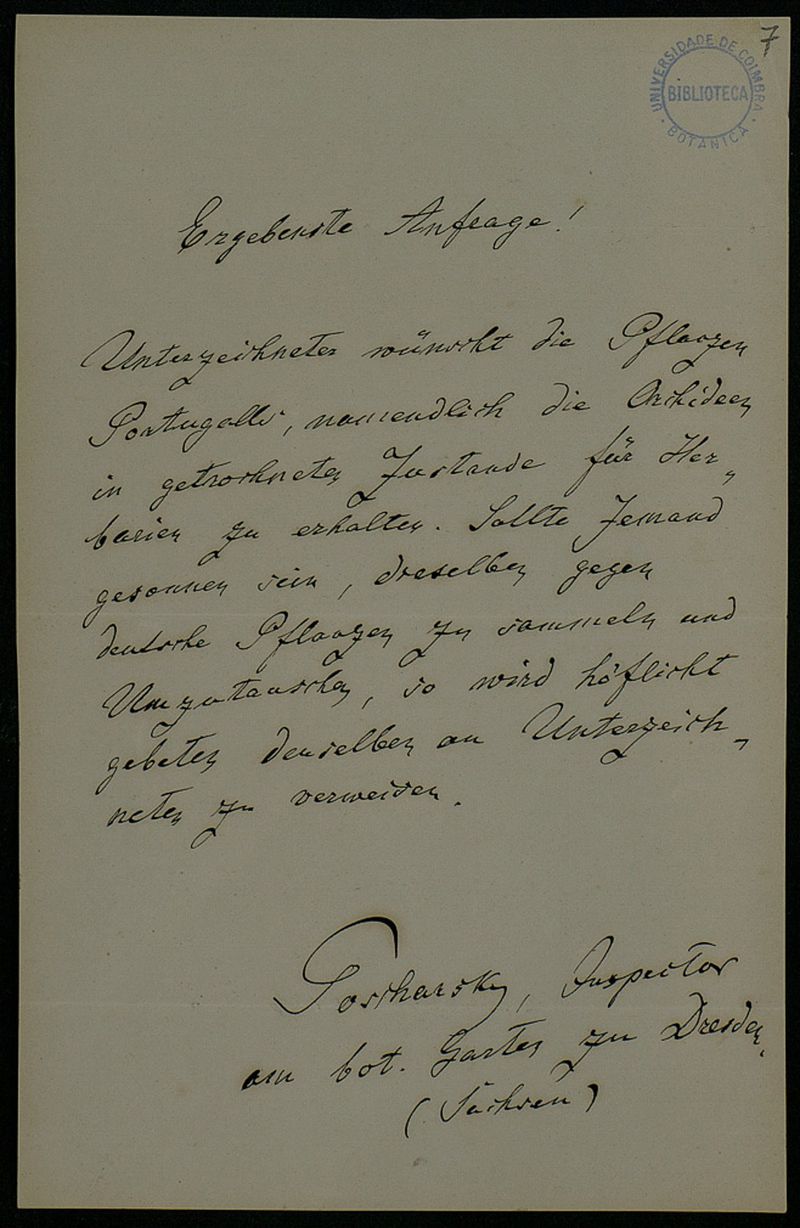 7
UNIVERSIDADE DE COIMBRA
BIBLIOTECA
BOTANICA
Ergebenste Anfrage!
Unterzeichneter wünscht die Pflanzen
Portugalls, namendlich die Orchideen
in getrockneten Zustande für Her„
barien zu erhalten. Sollte Jemand
gesonnen sein, dieselben gegen
deutsche Pflanzen zu sammeln und
Umzutauschen, so wird höflichst
gebeten denselben an Unterzeich„
neten zu verweisen.
Poscharsky, Inspector
am bot. Garten zu Dresden.
(Sachsen)